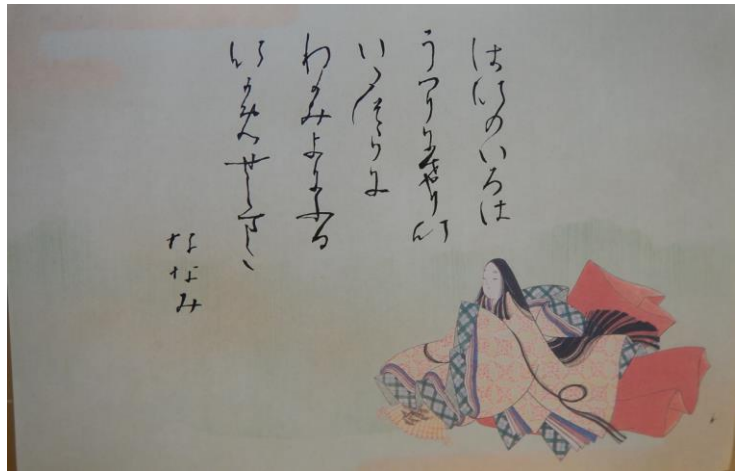 はなのいろは
うつりにけりな
いたつらに
わかみよにふる
なかめせしまに
ななみ